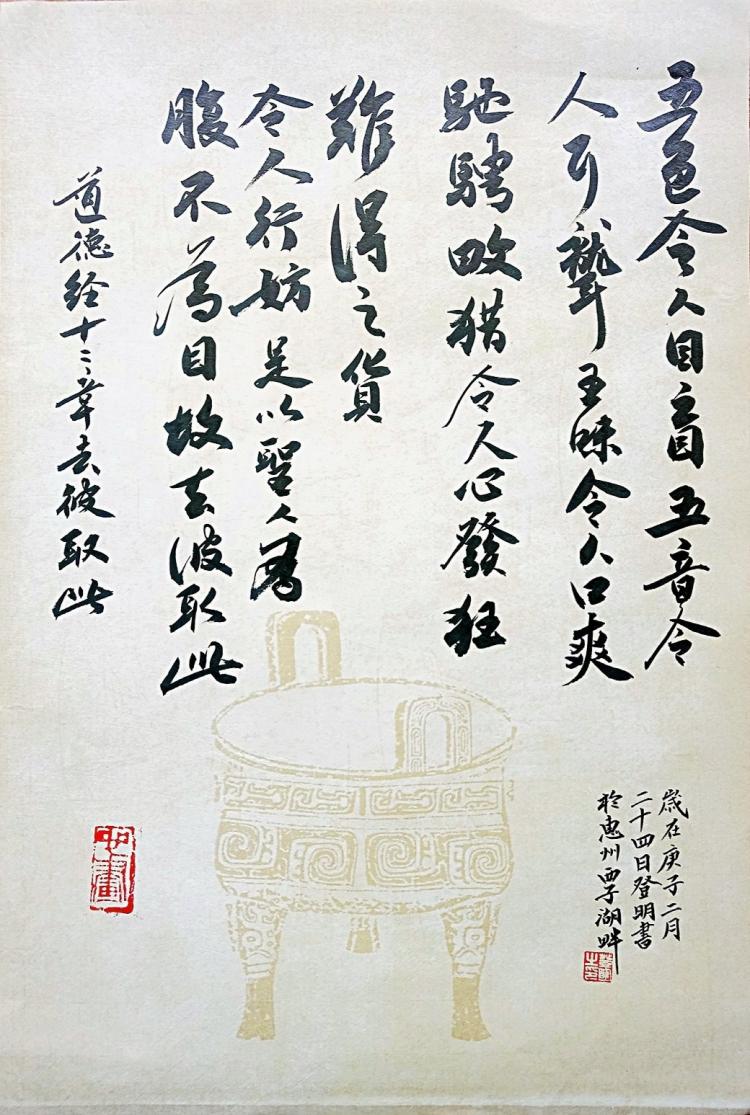 五色令人目盲五音令
人耳聾五味令人口爽
馳騁畋猎令人心發狂
難得之貨
令人行妨是以聖人為
腹不為目故去彼取此
道德经十二章去彼取此
歲在庚子二月
二十四日登明書
於惠州西子湖畔